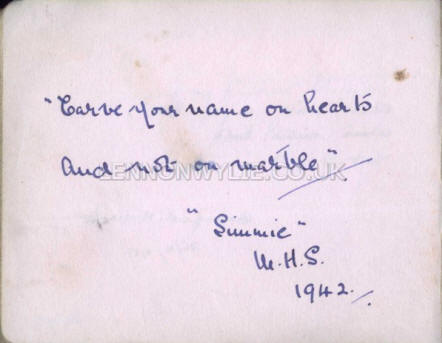 "Carve your name on hearts
And not on marble"
LENNONWYLIE.CO.UK
"Simmie"
M.H.S.
1942.